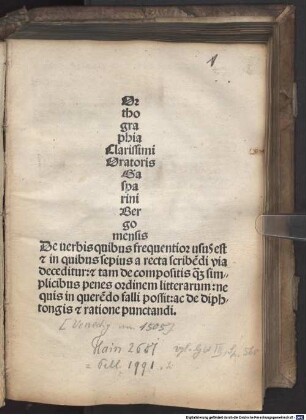 Or
tho
gra
phia
Clarissimi
Oratoris
Ga
spa
rini
Ber
go
mensis
De uerbis quibus frequentior usus est
& in quibus sepius a recta scribēdi via
deceditur: & tam de compositis q̄ sim-
plicibus penes ordinem litterarum: ne
quis in querēdo falli possit: ac de diph-
tongis & ratione punctandi.
Hain 2681
= Pell. 1991.
Digitalisierung gefördert durch die Deutsche Forschungsgemeinschaft